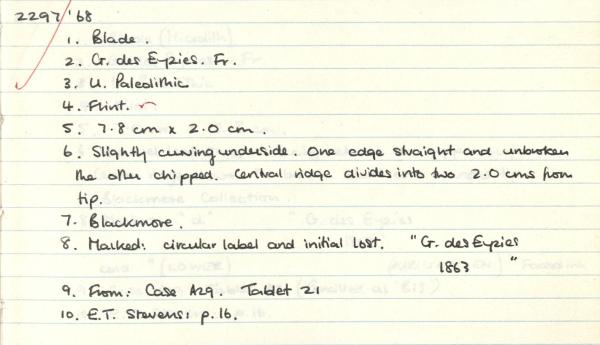 2297/'68
1. Blade.
2. G. des Eyzies. Fr.
3. U. Paleolithic
4. Flint.
5. 7.8 cm x 2.0 cm.
6. Slightly curving underside. One edge straight and unbroken
the other chipped. Central ridge divides into two 2.0 cms from
tip.
7. Blackmore.
8. Marked: circular label and initial lost. "G. des Eyzies
1863 "
9. From: Case A29. Tablet 21
10. E.T. Stevens: p.16.